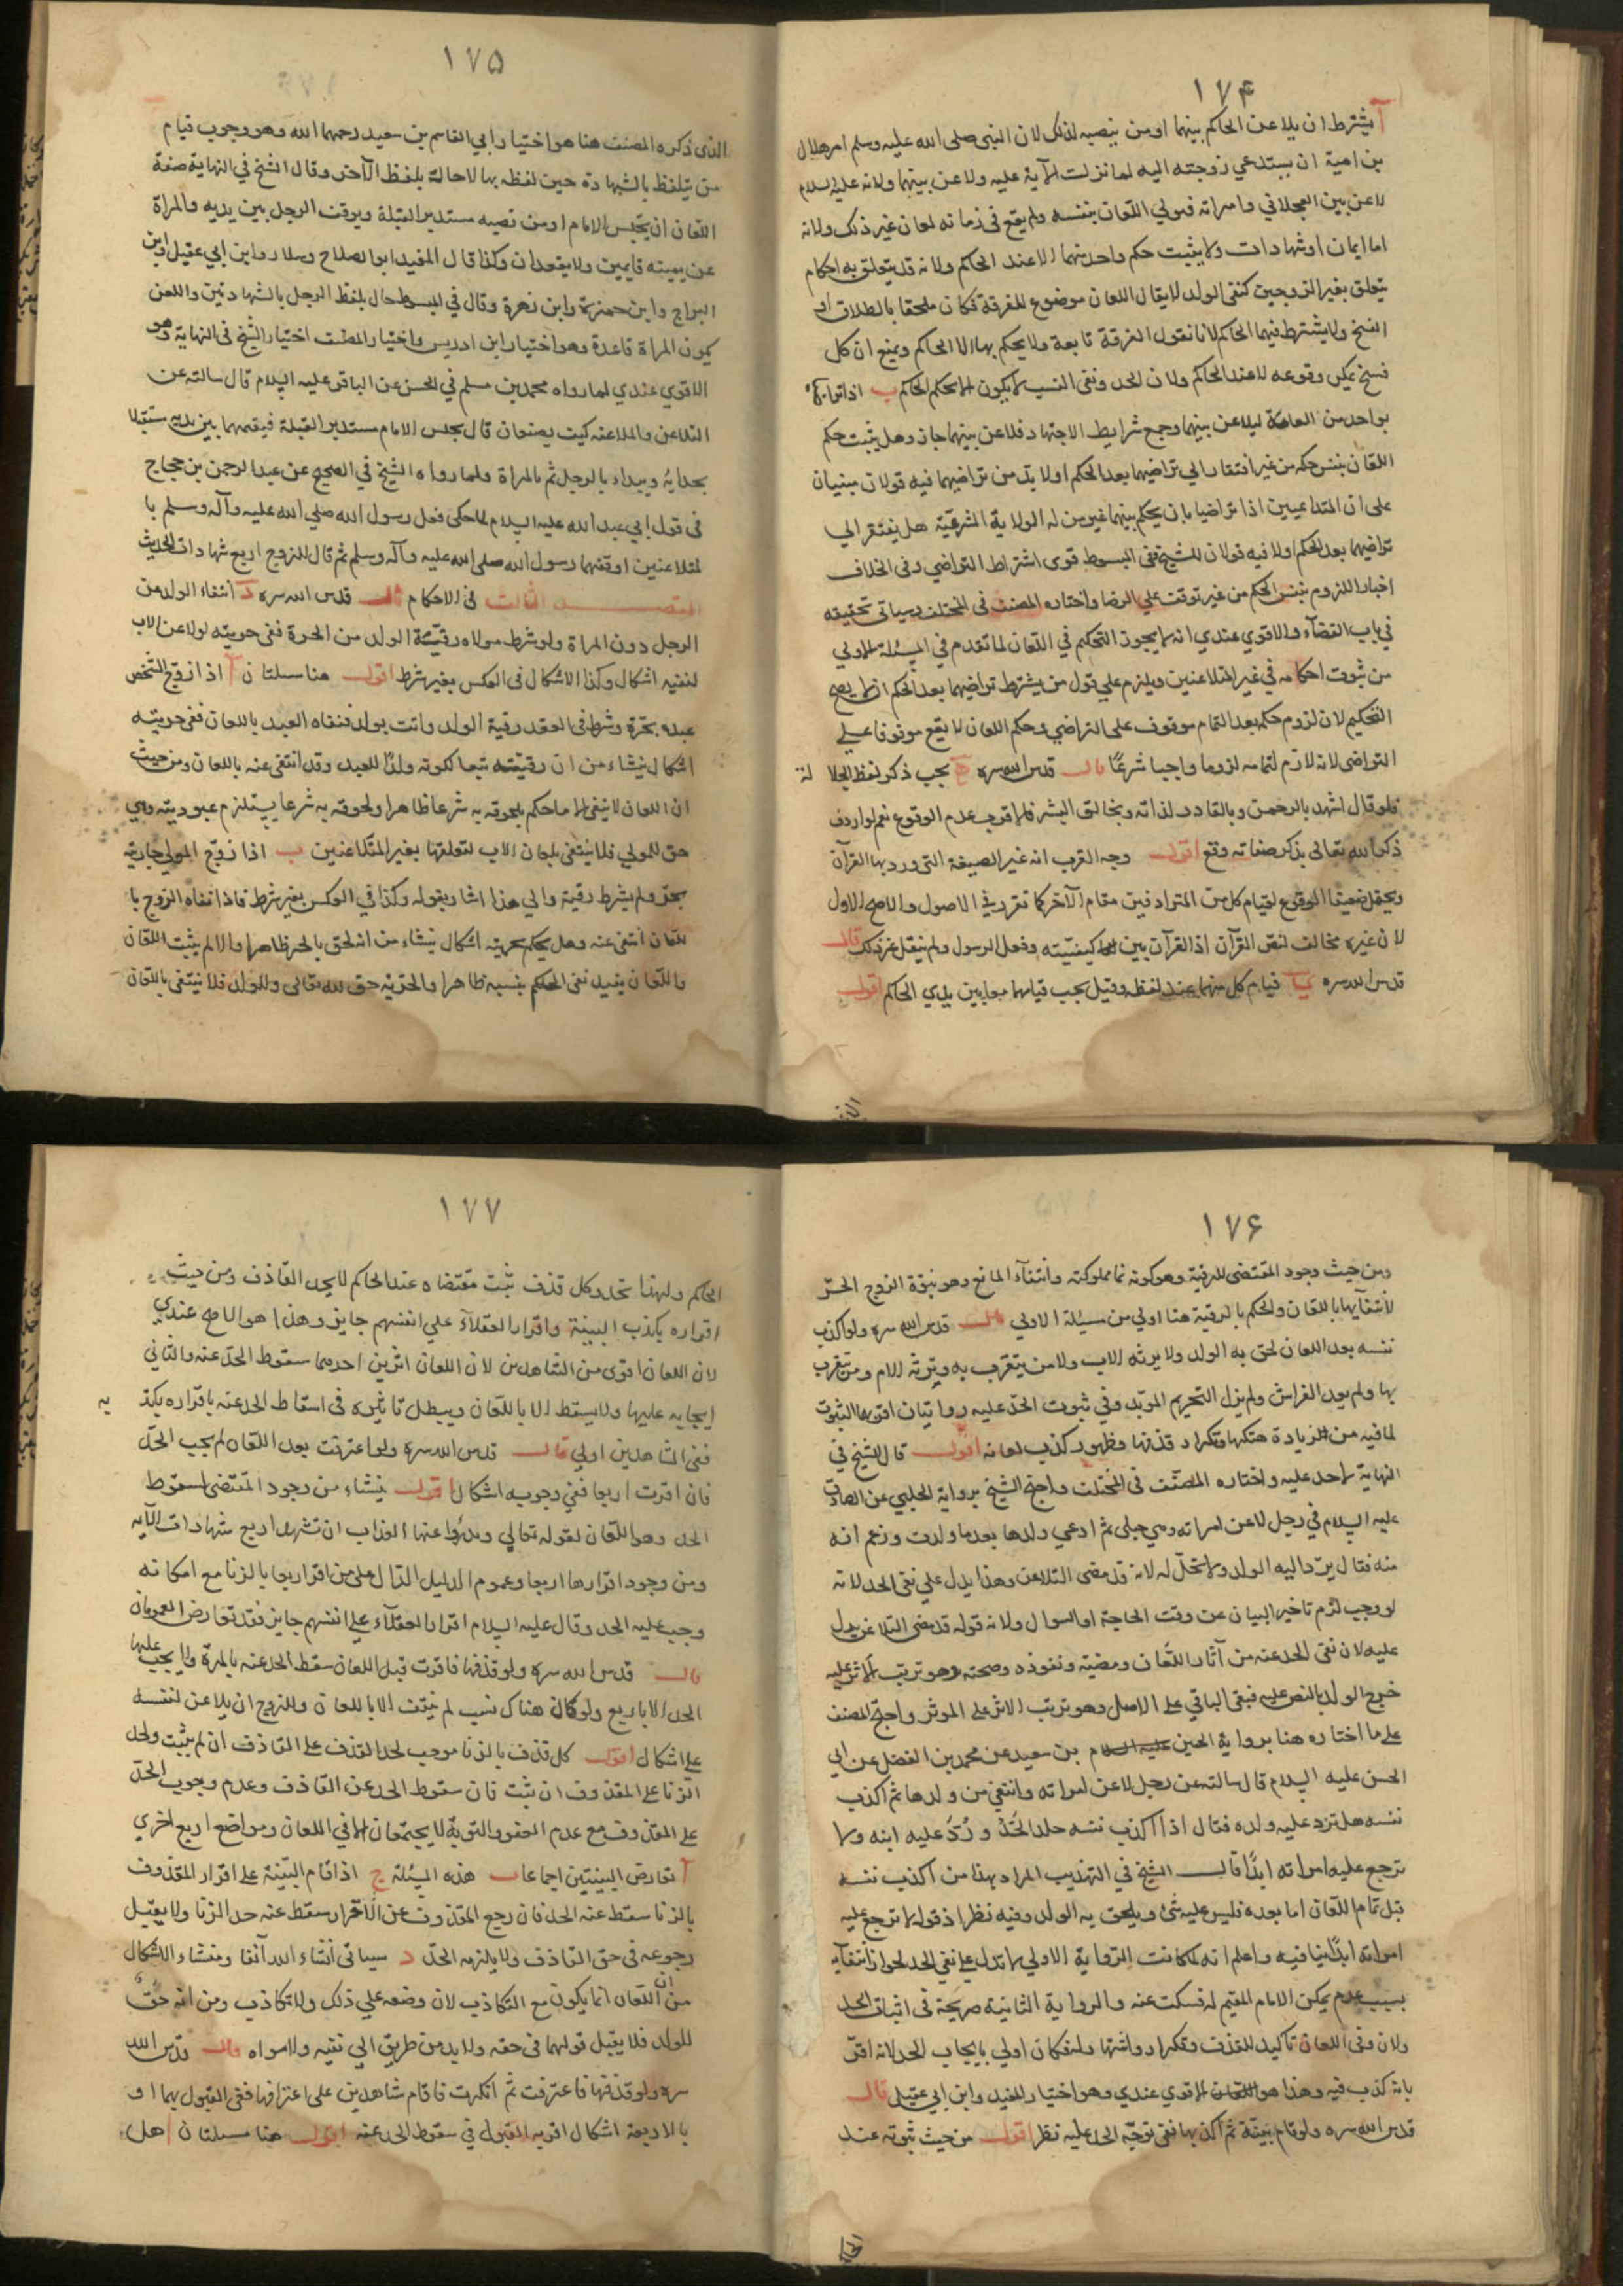 ١٧۴
آ يشترط ان يلاعن الحاكم بينهما او من ينصبه لذلك لان النبى صلى الله عليه وسلم امر هلال
بن امية ان يستدعي زوجته اليه لما نزلت الآية عليه ولاعن بينهما ولانه عليه السلام
لاعن بين العجلاني وامراته فولي اللعان بنفسه ولم يقع فى زمانه لعان غير ذلك ولانه
اما ايمان او شهادات ولا يثبت حكم واحد منهما الا عند الحاكم ولانه قد يتعلق به احكام
يتعلق بغير الزوجين كنفى الولد لا يقال اللعان موضوع للفرقة فكان ملحقا بالطلاق او
الفسخ ولا يشترط فيهما الحاكم لانا نقول الفرقة تابعة ولا يحكم بها الا الحاكم ويمنع ان كل
فسخ يمكن وقوعه لا عند الحاكم ولان الحد ونفى النسب لا يكون الا بحكم الحاكم ب اذا تراضيا
بواحد من العامة ليلاعن بينهما وجمع شرايط الاجتهاد فلاعن بينهما جاز وهل يثبت حكم
اللعان بنفس حكمه من غير افتقار الي تراضيهما بعد الحكم او لا بد من تراضيهما فيه قولان مبنيان
على ان المتداعيين اذا تراضيا بان يحكم بينهما غير من له الولاية الشرعيّة هل يفتقر الي
تراضيهما بعد الحكم او لا فيه قولان للشيخ ففى المبسوط قوى اشتراط التراضي وفى الخلاف
اختار اللزوم بنفس الحكم من غير توقف علي الرضا واختاره المصنف فى المختلف وسياتى تحقيقه
في باب القضآء والاقوي عندي انه لا يجوز التحكيم في اللعان لما تقدم في المسئلة الاولي
من ثبوت احكامه في غير المتلاعنين ويلزم علي قول من يشترط تراضيهما بعد الحكم ان لا يصح
التحكيم لان لزوم حكمه بعد التمام موقوف على التراضي وحكم اللعان لا يقع موقوفا على
التراضى لانه لازم لتمامه لزوما واجبا شرعًا قال قدس الله سره ح يجب ذكر لفظ الجلا لة
فلو قال اشهد بالرحمن وبالقادر لذاته وبخالق البشر فالاقرب عدم الوقوع نعم لو اردف
ذكر الله تعالى بذكر صفاته وقع اقول وجه القرب انه غير الصيغة التى ورد بها القرآن
ويحتمل ضعيفا الوقوع لقيام كل من المترادفين مقام الآخر كما تقرر في الاصول والاصح الاول
لان غيره مخالف لنص القرآن اذ القرآن بين كيفيّته وفعل الرسول ولم ينقل غير ذلك قال
قدس الله سره يا قيام كل منهما عند لفظه وقيل يجب قيامهما معا بين يدي الحاكم اقول
١٧۵
الذى ذكره المصنف هنا هو اختيار ابي القاسم بن سعيد رحمهما الله وهو وجوب قيام
من يتلفظ بالشهادة حين لفظه بها لا حالة بلفظ الآخر وقال الشيخ في النهاية صفة
اللعان ان يجلس الامام او من نصبه مستدبر القبلة ويوقف الرجل بين يديه والمراة
عن يمينه قايمين ولا يقعدان وكذا قال المفيد ابو الصلاح وسلار وابن ابي عقيل وابن
البراج وابن حمزة وابن زهرة وقال في المبسوط حال بلفظ الرجل بالشهادتين واللعن
يكون المراة قاعدة وهو اختيار ابن ادريس واختيار المصنف اختيار الشيخ فى النهاية وهو
الاقوي عندي لما رواه محمد بن مسلم في الحسن عن الباقر عليه السلام قال سالته عن
الملاعن والملاعنه كيف يصنعان قال يجلس الامام مستدبر القبلة فيقيمهما بين يديه مستقبلا
بحذايه ويبداء بالرجل ثم بالمراة ولما رواه الشيخ في الصحيح عن عبد الرحمن بن حجاج
فى قول ابي عبد الله عليه السلام لما حكى فعل رسول الله صلي الله عليه وآله وسلم با
لمتلاعنين اوقفهما رسول الله صلى الله عليه وآله وسلم ثم قال للزوج اربع شهادات الحديث
المقصد الثالث فى الاحكام قال قدس الله سره د انتفاء الولد من
الرجل دون المراة ولو شرط مولاه رقيّة الولد من الحرة ففى حريته لو لاعن الاب
لنفيه اشكال وكذا الاشكال فى العكس بغير شرط اقول هنا مسئلتان آ اذا زوج الشخص
عبده بحرّة وشرط فى العقد رقية الولد واتت بولد فنفاه العبد باللعان ففى حريته
اشكال ينشاء من ان رقيته تبعا لكونه ولدًا للعبد وقد انتفى عنه باللعان ومن حيث
ان اللعان لا ينفى الا ما حكم بلحوقه به شرعا ظاهرا ولحوقه به شرعا يستلزم عبوديته وهي
حق للمولي فلا ينتفى بلعان الاب لتعلقها بغير المتلاعنين ب اذا زوّج المولي جاريته
بحرّ ولم يشرط رقية والي هذا اشار بقوله وكذا في العكس بغير شرط فاذا نفاه الزوج با
للعان انتفى عنه وهل يحكم بحريته اشكال ينشاء من انه لحق بالحر ظاهرا والا لم يثبت اللعان
واللعان يفيد نفى الحكم بنسبه ظاهرا والحرّية حق لله تعالى وللولد فلا ينتفى باللعان
١٧۶
ومن حيث وجود المقتضى للرقية وهو كونه نما مملوكته وانتفآء المانع وهو بنوّة الزوج الحرّ
لانتفايها باللعان والحكم بالرقية هنا اولي من مسئلة الاولي قال قدس الله سره ولو اكذب
نفسه بعد اللعان لحق به الولد ولا يرثه الاب ولا من يتقرب به وترثه الام ومن يتقرب
بها ولم يعد الفراش ولم يزل التحريم الموبّد وفي ثبوت الحدّ عليه روايتان اقربهما الثبوت
لما فيه من الزيادة هتكها وتكرار قذفها وظهور كذب لعانه اقول قال الشيخ في
النهاية لا حد عليه واختاره المصنّف فى المختلف واحتج الشيخ برواية الحلبي عن الصادق
عليه السلام في رجل لاعن امراته وهي حبلى ثم ادعي ولدها بعد ما ولدت وزعم انه
منه فقال يردّ اليه الولد ولا تحلّ له لانه قد مضى التلاعن وهذا يدل علي نفى الحد لانه
لو وجب لزم تاخير البيان عن وقت الحاجة او السوال ولانه قوله قد مضى التلاعن يدل
عليه لان نفى الحد عنه من آثار اللّعان ومضيّه ونفوذه وصحته وهو ترتب الاثر عليه
خرج الولد بالنص عليه فبقى الباقي على الاصل وهو ترتب الاثر على الموثر واحتج المصنف
على ما اختاره هنا برواية الحسين بن سعيد عن محمد بن الفضل عن ابي
الحسن عليه السلام قال سالته عن رجل لاعن امراته وانتفى من ولدها ثم اكذب
نفسه هل ترد عليه ولده فقال اذا اكذب نفسه جلد الحَدّ و رُدّ عليه ابنه ولا
ترجع عليه امراته ابدًا قال الشيخ في التهذيب المراد بهذا من اكذب نفسه
قبل تمام اللعان اما بعده فليس عليه شئ ويلحق به الولد وفيه نظر اذ قوله لا ترجع عليه
امراته ابدًا ينافيه واعلم انه لما كانت الرّواية الاولي لا تدل على نفى الحد لجواز انتفآيه
بسبب عدم تمكن الامام المقيم له فسكت عنه والرواية الثانية صريحة فى اثبات الحد
ولان وفى اللعان تاكيد للقذف وتكرار واشتها ولف فكان اولي بايجاب الحد لانه اقرّ
بانه كذب فيه وهذا هو الاقوي عندي وهو اختيار المفيد وابن ابي عقيل قال
قدس الله سره ولو قام بينة ثم اكذبها ففى توجّه الحد عليه نظر اقول من حيث ثبوته عند
١٧٧
الحاكم ولهذا تحد وكل قذف ثبت مقتضاه عند الحاكم لا يحد القاذف ومن حيث
اقراره بكذب البينة واقرار العقلاء علي انفسهم جايز وهذا هو الاصح عندي
لان اللعان اقوى من الشاهدين لان اللعان اثرين احدهما سقوط الحدّ عنه والثاني
ايجابه عليها ولا يسقط الا باللعان ويبطل تاثيره فى اسقاط الحد عنه باقراره بكذ به
ففى الشاهدين اولي قال قدس الله سره ولو اعترفت بعد اللعان لم يجب الحدّ
فان اقرت اربعا ففي وجوبه اشكال اقول ينشاء من وجود المقتضى لسقوط
الحد وهو اللعان لقوله تعالي ويدرؤا عنها العذاب ان تشهد اربع شهادات الآية
ومن وجود اقرارها اربعا وعموم الدليل الدّال على من اقر اربعا بالزنا مع امكانه
وجب عليه الحد وقال عليه السلام اقرار العقلاء على انفسهم جايز فقد تعارض العمومان
قال قدس الله سره ولو قذفها فاقرت قبل اللعان سقط الحد عنه بالمرة ولا يجب عليها
الحد الا باربع ولو كان هناك نسب لم ينتف الا باللعان وللزوج ان يلاعن لنفسه
على اشكال اقول كل قذف بالزنا موجب لحد القذف على القاذف ان لم يثبت ولحد
الزنا على المقذوف ان ثبت فان سقوط الحد عن القاذف وعدم وجوب الحدّ
على المقذوف مع عدم العفو والتوبة لا يجتمعان الا في اللعان ومواضع اربع اخري
آ تعارض البينتين اجماعا ب هذه المسئلة ج اذا قام البيّنة على اقرار المقذوف
بالزنا سقط عنه الحد فان رجع المقذوف عن الاقرار سقط عنه حد الزنا ولا يقبل
رجوعه فى حق القاذف ولا يلزمه الحدّ د سياتى انشاء الله آنفا ومنشاء الاشكال
من ان اللعان انما يكون مع التكاذب لان وضعه علي ذلك ولا تكاذب ومن انه حق
للولد فلا يقبل قولهما فى حقه ولا بد من طريق الي نفيه ولا سواه قال قدس الله
سره ولو قذفها فاعترفت ثم انكرت فاقام شاهدين على اعترافها ففى القبول بهما او
بالاربعة اشكال اقربه القبول في سقوط الحد عنه اقول هنا مسئلتان ا هل